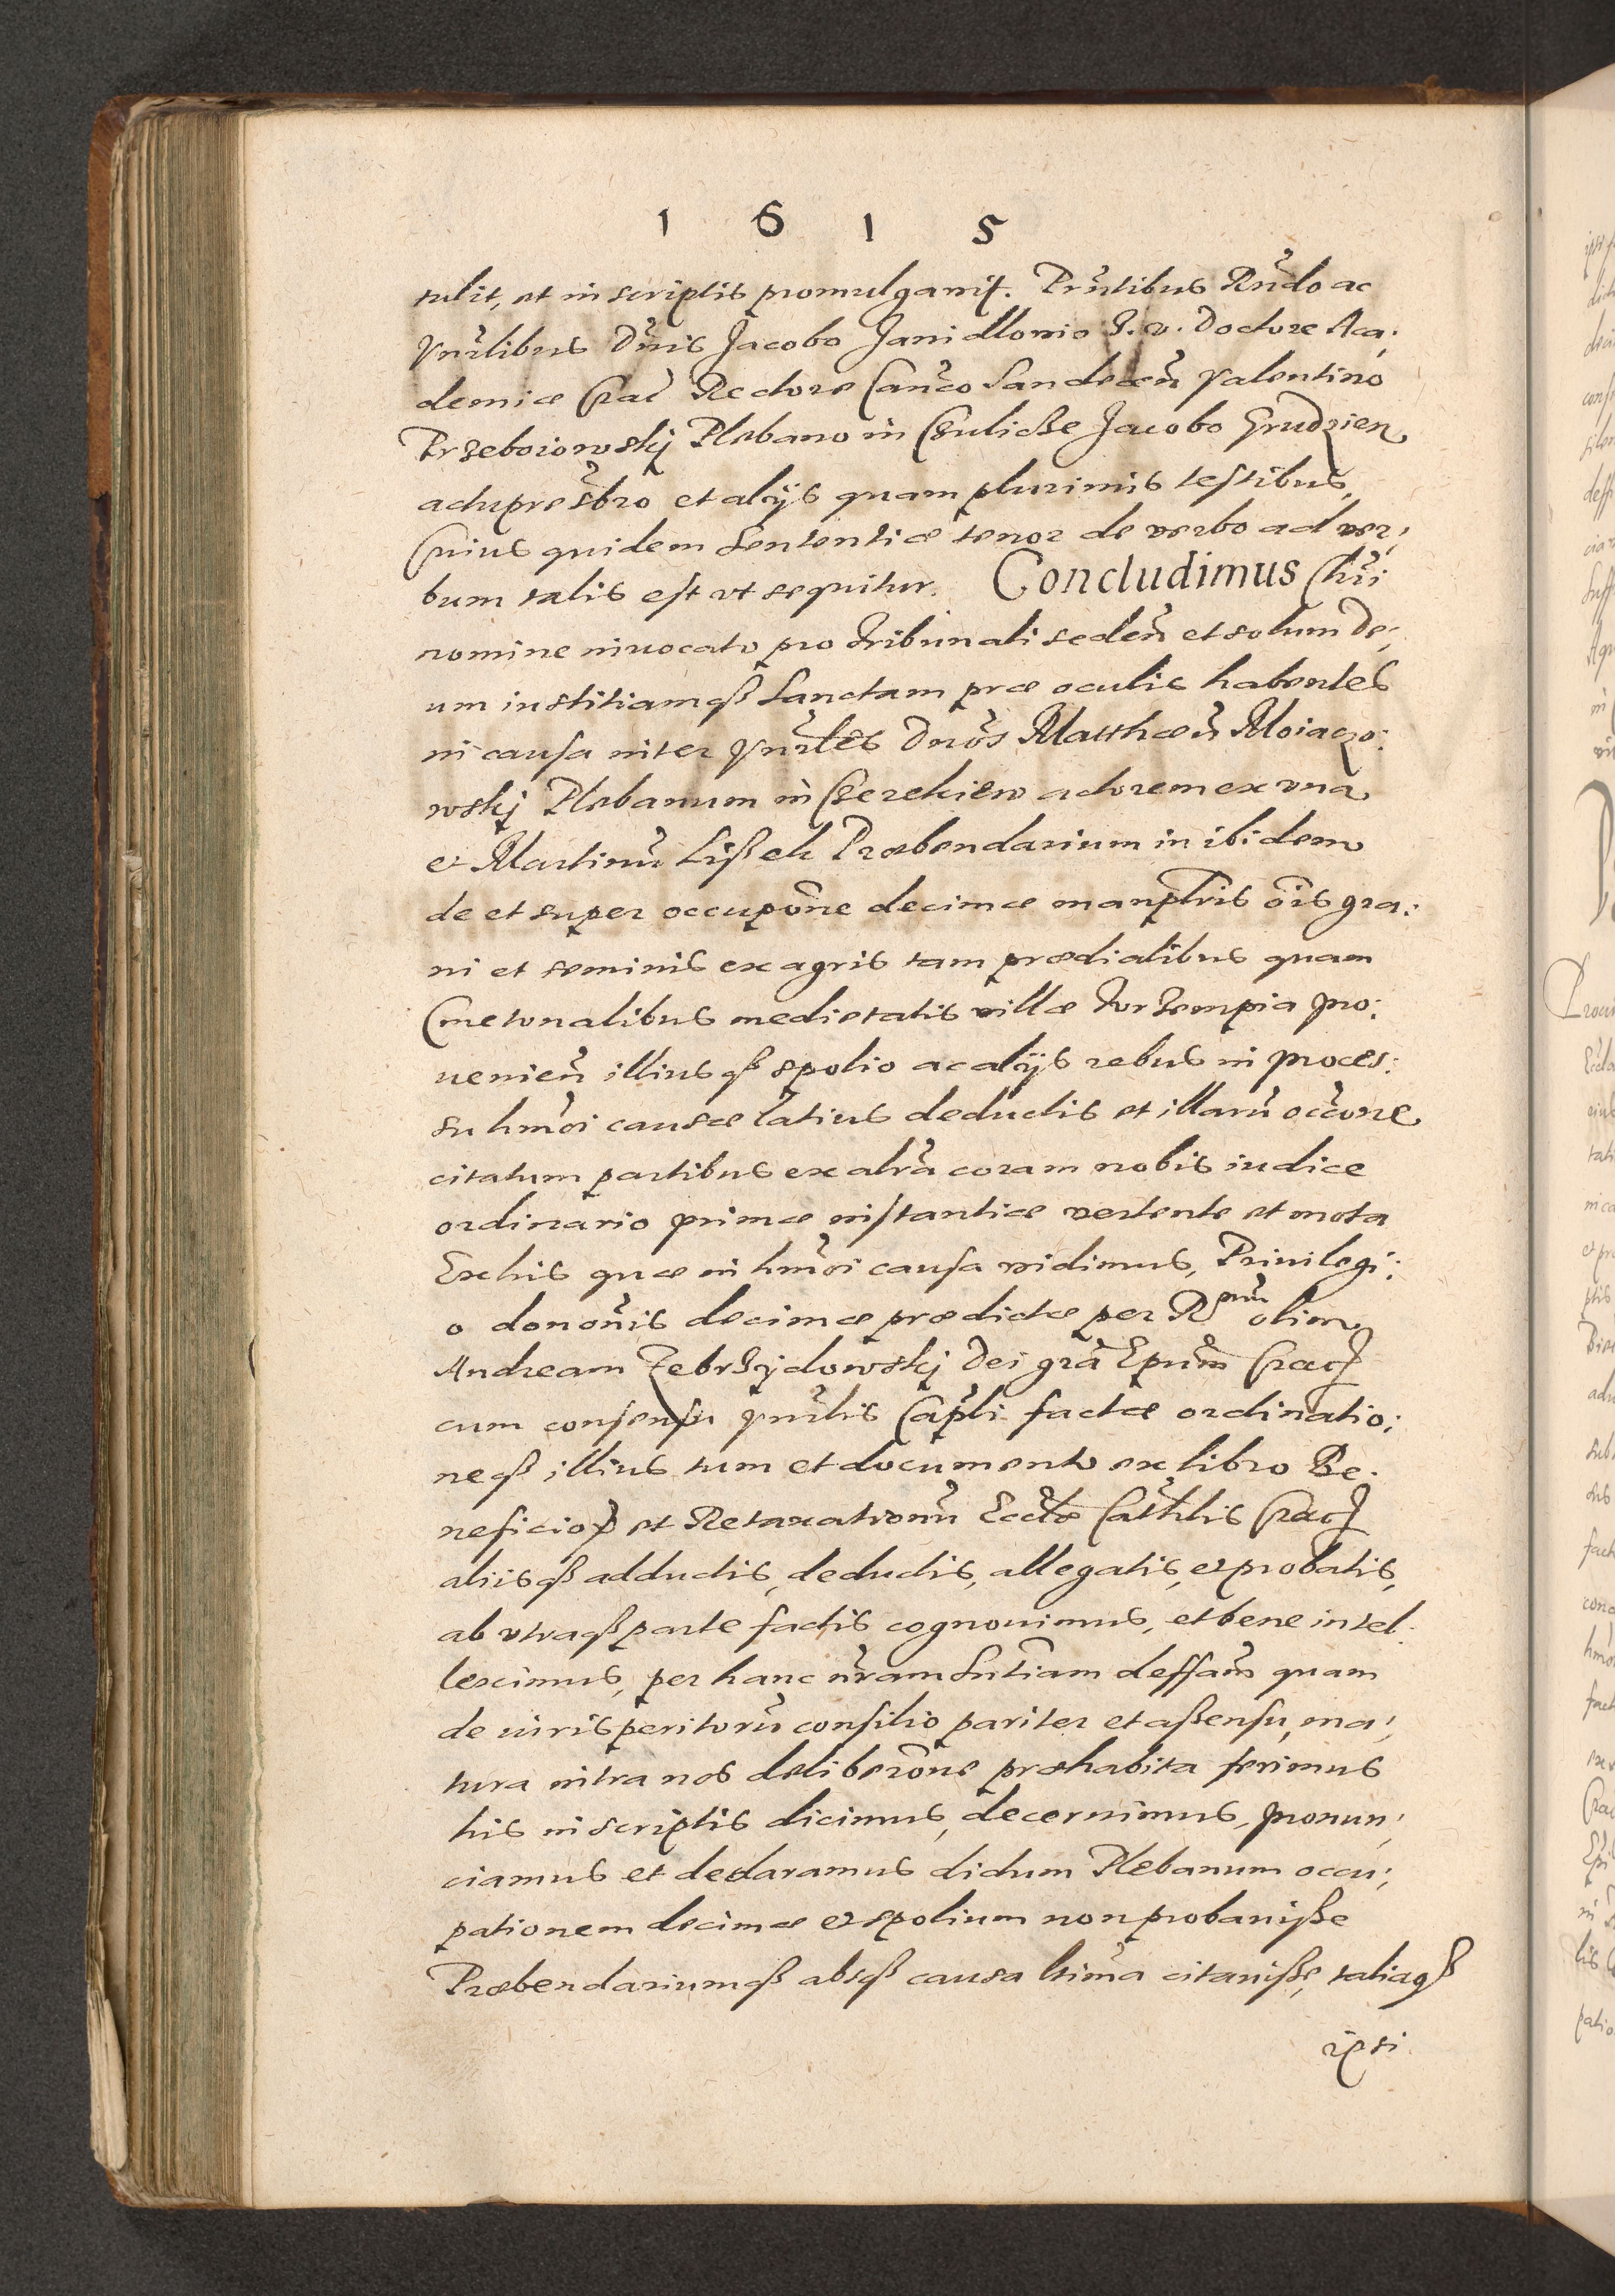 1 6 1 5
tulit, et in scriptis promulgavit. Prñtibus Rñdo ac
Vnrlibus Dñis Jacobo Janidlovio I. v. Doctore Aca:
demiæ Crac Rectore Canco Sandecen Valentino
Przeborowskj Plebano in Czulicze Jacobo Grudzien
actupresbro et alijs quam plurimis testibus,
Cuius quidem Sententiæ tenor de verbo ad ver:
bum talis est vt sequitur. Concludimus Chri
nomine invocato pro tribunali seden et solum De:
um iustitiamqß Sanctam præ oculis habentes
in causa inter Vnrles Dnos Matthæu Moiaczo:
wskj Plebanum in Czerekiew actorem ex vna
et Martinu Lißek Præbendarium in ibidem
de et super occupone decimæ manplris ois gra:
ni et seminis ex agris tam prædialibus quam
Cmetonalibus medietatis villæ Forzempia pro:
uenien illiusqß spolio ac alijs rebus in proces:
su hmoi causæ latius deductis et illaru occone
citatum partibus ex altra coram nobis iudice
ordinario primæ instantiæ vertente et mota
Ex his quæ in hmoi causa vidimus, Privilegi:
o dononis decimæ prædictæ per Rmum olim
Andream Zebrzydowskj Dei gra Epum Crac
cum consensu Vnrlis Capli factæ ordinatio:
neqß illius tum et documento ex libro Be:
neficioꝝ et Retaxationu Eccliæ Cathlis Crac
aliisqß adductis, deductis, allegatis, et probatis,
ab vtraqß parte factis cognovimus, et bene intel:
leximus, per hanc nram Sntiam deffam quam
de iurisperitoru consilio pariter et aßensu, ma:
tura intra nos deliberone præhabita ferimus
his in scriptis dicimus, decernimus, pronun:
ciamus et declaramus dictum Plebanum occu:
pationem decimæ et spolium non probaviße
Præbendariumqß absqß causa ltima citaviße, taliaqß
ipsi